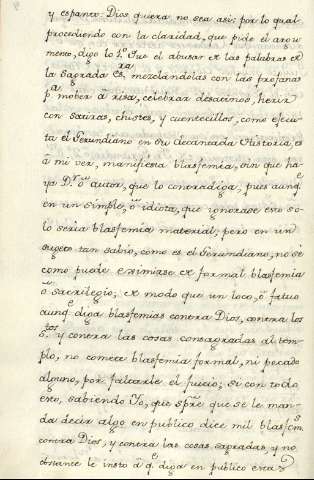 y espanto: Dios quiera no sea asi: por lo qual
procediendo con la claridad, que pide el argu
mento, digo lo 1.º Que el abusar de las palabras de
la sagrada esᵃ, mezclandolas con las profanas
pᵃ mober à risa, celebrar desatinos, herir
con satiras, chistes, y cuentecillos, como efecu
ta el Gerundiano en su decantada Historia, es
à mi ver, manifiesta blasfemia, sin que ha
ya D.ʳ ò autor, que lo contradiga, pues aunqᵉ
en un simple, ò idiota, que ignorase esto so-
lo seria blasfemia material; pero en un
sugeto tan sabio, como es el Gerundiano, no sè
como puede eximirse de formal blasfemia
ò sacrilegio; de modo que un loco, ò fatuo
aunqᵉ diga blasfemias contra Dios, contra los
S.ᵗᵒˢ y contra las cosas consagradas al tem-
plo, no comete blasfemia formal, ni pecado
alguno, por faltarle el juicio; si con todo
esto, sabiendo Yo, que spʳᵉ que se le man-
da decir algo en publico dice mil blasfemˢ
contra Dios, y contra las cosas sagradas, y no
obstante le insto à qᵉ diga en publico esta